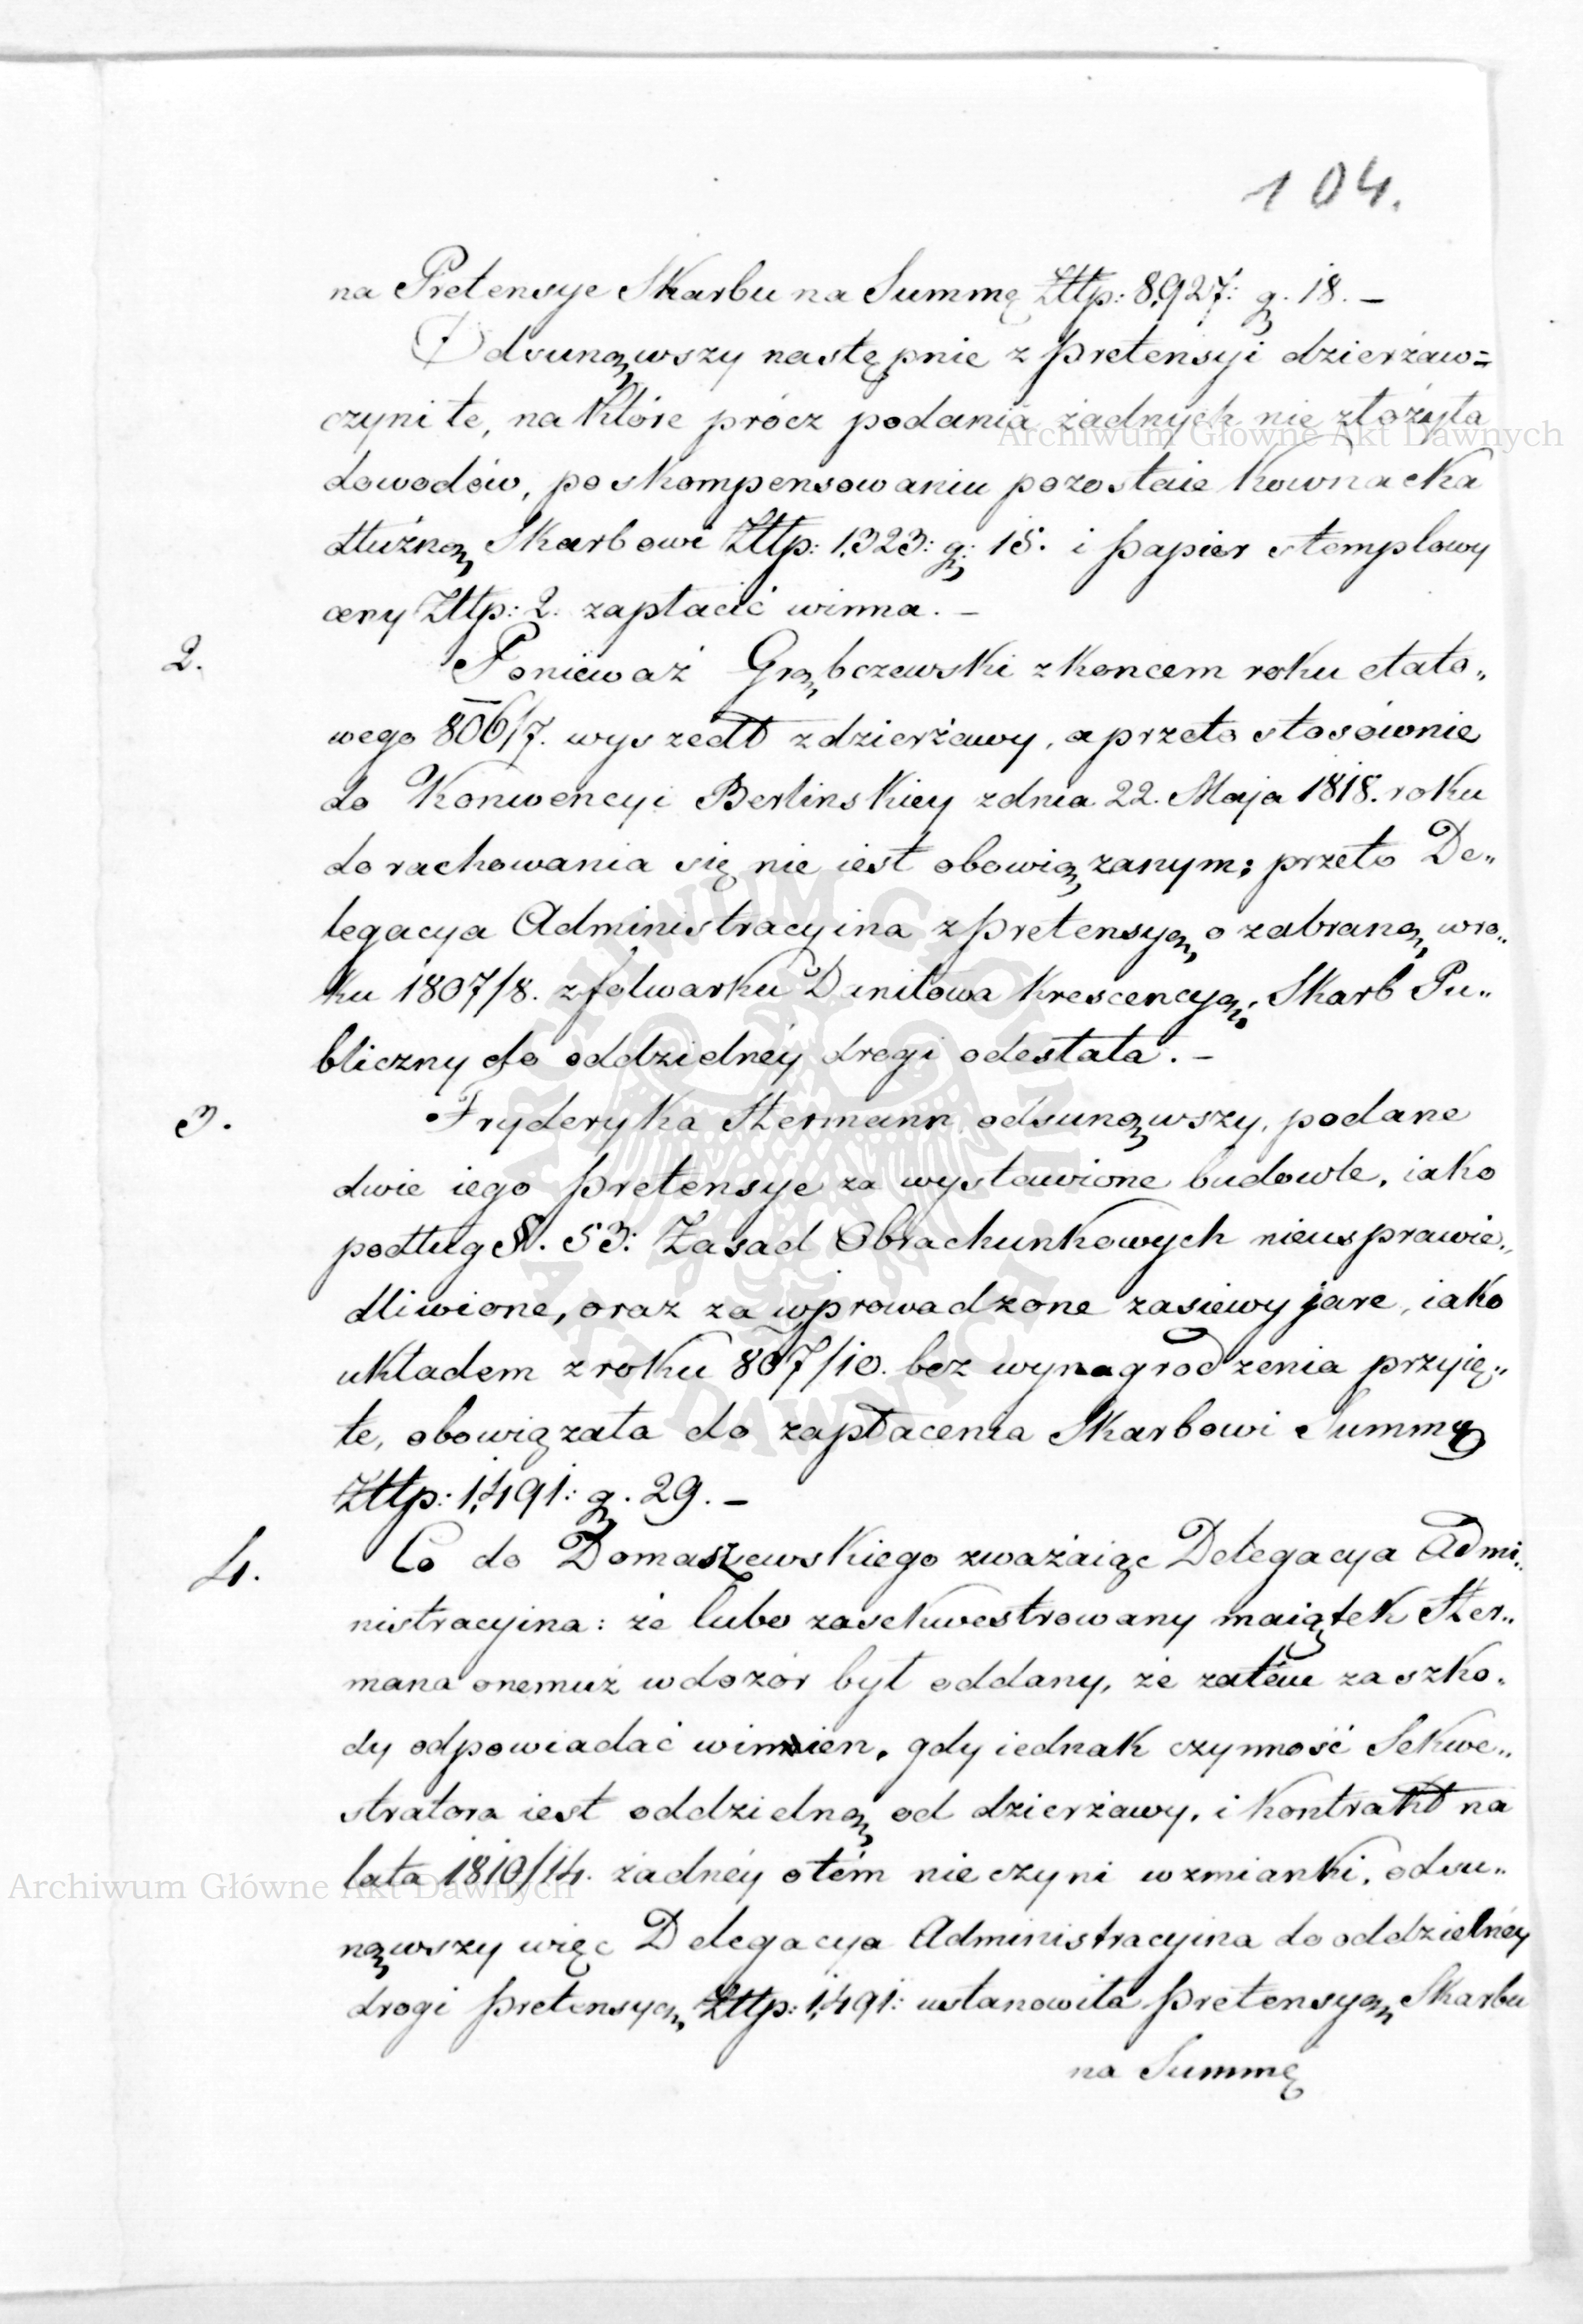 104.
na Pretensye Skarbu na Summę Złłp: 8,927: g. 18. –
Odsunąwszy następnie z pretensyi dzierżaw=
czyni te, na które prócz podania żadnych nie złożyła
dowodów, po skompensowaniu pozostaie Kownacka
dłużną Skarbowi Złłp: 1,323: g: 15. i papier stemplowy
ceny Złłp: 2. zapłacić winna. –
2. Ponieważ Grąbczewski z koncem roku etato„
wego 806/7. wyszedł z dzierżawy, a przeto stosównie
do Konwencyi Berlinskiey z dnia 22. Maja 1818. roku
do rachowania się nie iest obowiązanym; przeto De„
legacya Administracyina z pretensyą o zabraną w ro„
ku 1807/8. z folwarku Daniłowa krescencyą; Skarb Pu„
bliczny do oddzielnéy drogi odesłała. –
3. Fryderyka Hermann odsunąwszy, podane
dwie iego pretensye za wystawione budowle, iako
podług §. 53: Zasad Obrachunkowych nieusprawie„
dliwione, oraz za wprowadzone zasiewy jare, iako
układem z roku 807/10. bez wynagrodzenia przyię„
te, obowiązała do zapłacenia Skarbowi Summy
Złłp: 1,491: g. 29. –
4. Co do Domaszewskiego zważaiąc Delegacya Admi„
nistracyina: że lubo zasekwestrowany maiątek Her„
mana onemuż w dozór był oddany, że zatém za szko„
dy odpowiadać winien, gdy iednak czynność Sekwe„
stratora iest oddzielną od dzierżawy, i kontrakt na
lata 1810/14. żadnéy o tém nie czyni wzmianki, odsu„
nąwszy więc Delegacya Administracyina do oddzielnéy
drogi pretensyą Złłp: 1,491: ustanowiła pretensyą Skarbu
na Summę
Archiwum Główne Akt Dawnych
Archiwum Główne Akt Dawnych
ARCHIWUM GŁÓWNE AKT DAWNYCH